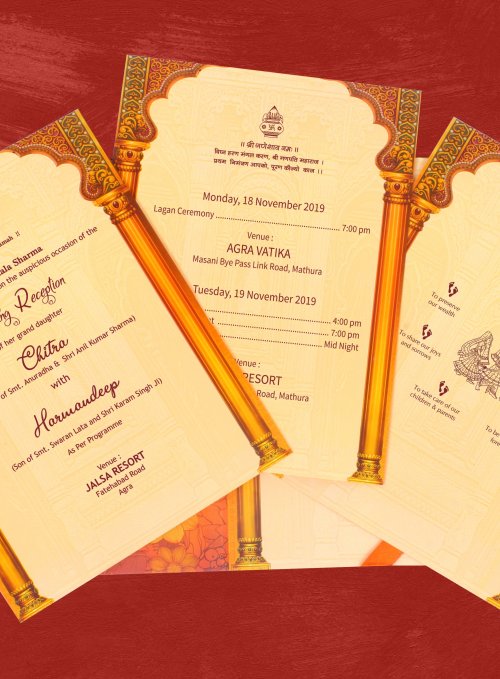 mah ॥
ala Sharma
on the auspicious occasion of the
ng Reception
her grand daughter
Chitra
of Smt. Anuradha & Shri Anil Kumar Sharma)
with
Harmandeep
(Son of Smt. Swaran Lata and Shri Karam Singh Ji)
As Per Programme
Venue :
JALSA RESORT
Fatehabad Road
Agra
॥ श्री गणेशाय नमः ॥
विघ्न हरण मंगल करण, श्री गणपति महाराज ।
प्रथम निमंत्रण आपको, पूरण कीज्यो काज ।।
Monday, 18 November 2019
Lagan Ceremony ........ 7:00 pm
Venue :
AGRA VATIKA
Masani Bye Pass Link Road, Mathura
Tuesday, 19 November 2019
4:00 pm
7:00 pm
Mid Night
ESORT
Road, Mathura
To preserve
our wealth
To share our joys
and sorrows
To take care of our
children & parents
To be